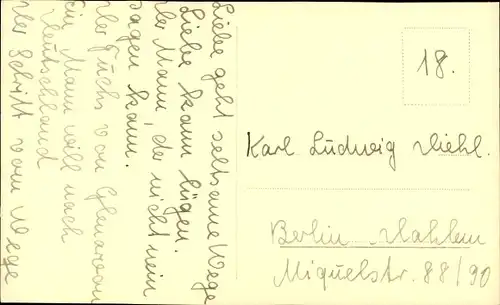 Liebe geht seltsame Wege
Liebe kann lügen.
der Mann, der nicht nein
sagen kann.
der Fuchs von Glenarvon
ein Mann will nach
Deutschland
der Schritt vom Wege
18.
Karl Ludwig Diehl.
Berlin Dahlem
Miquelstr. 88/90